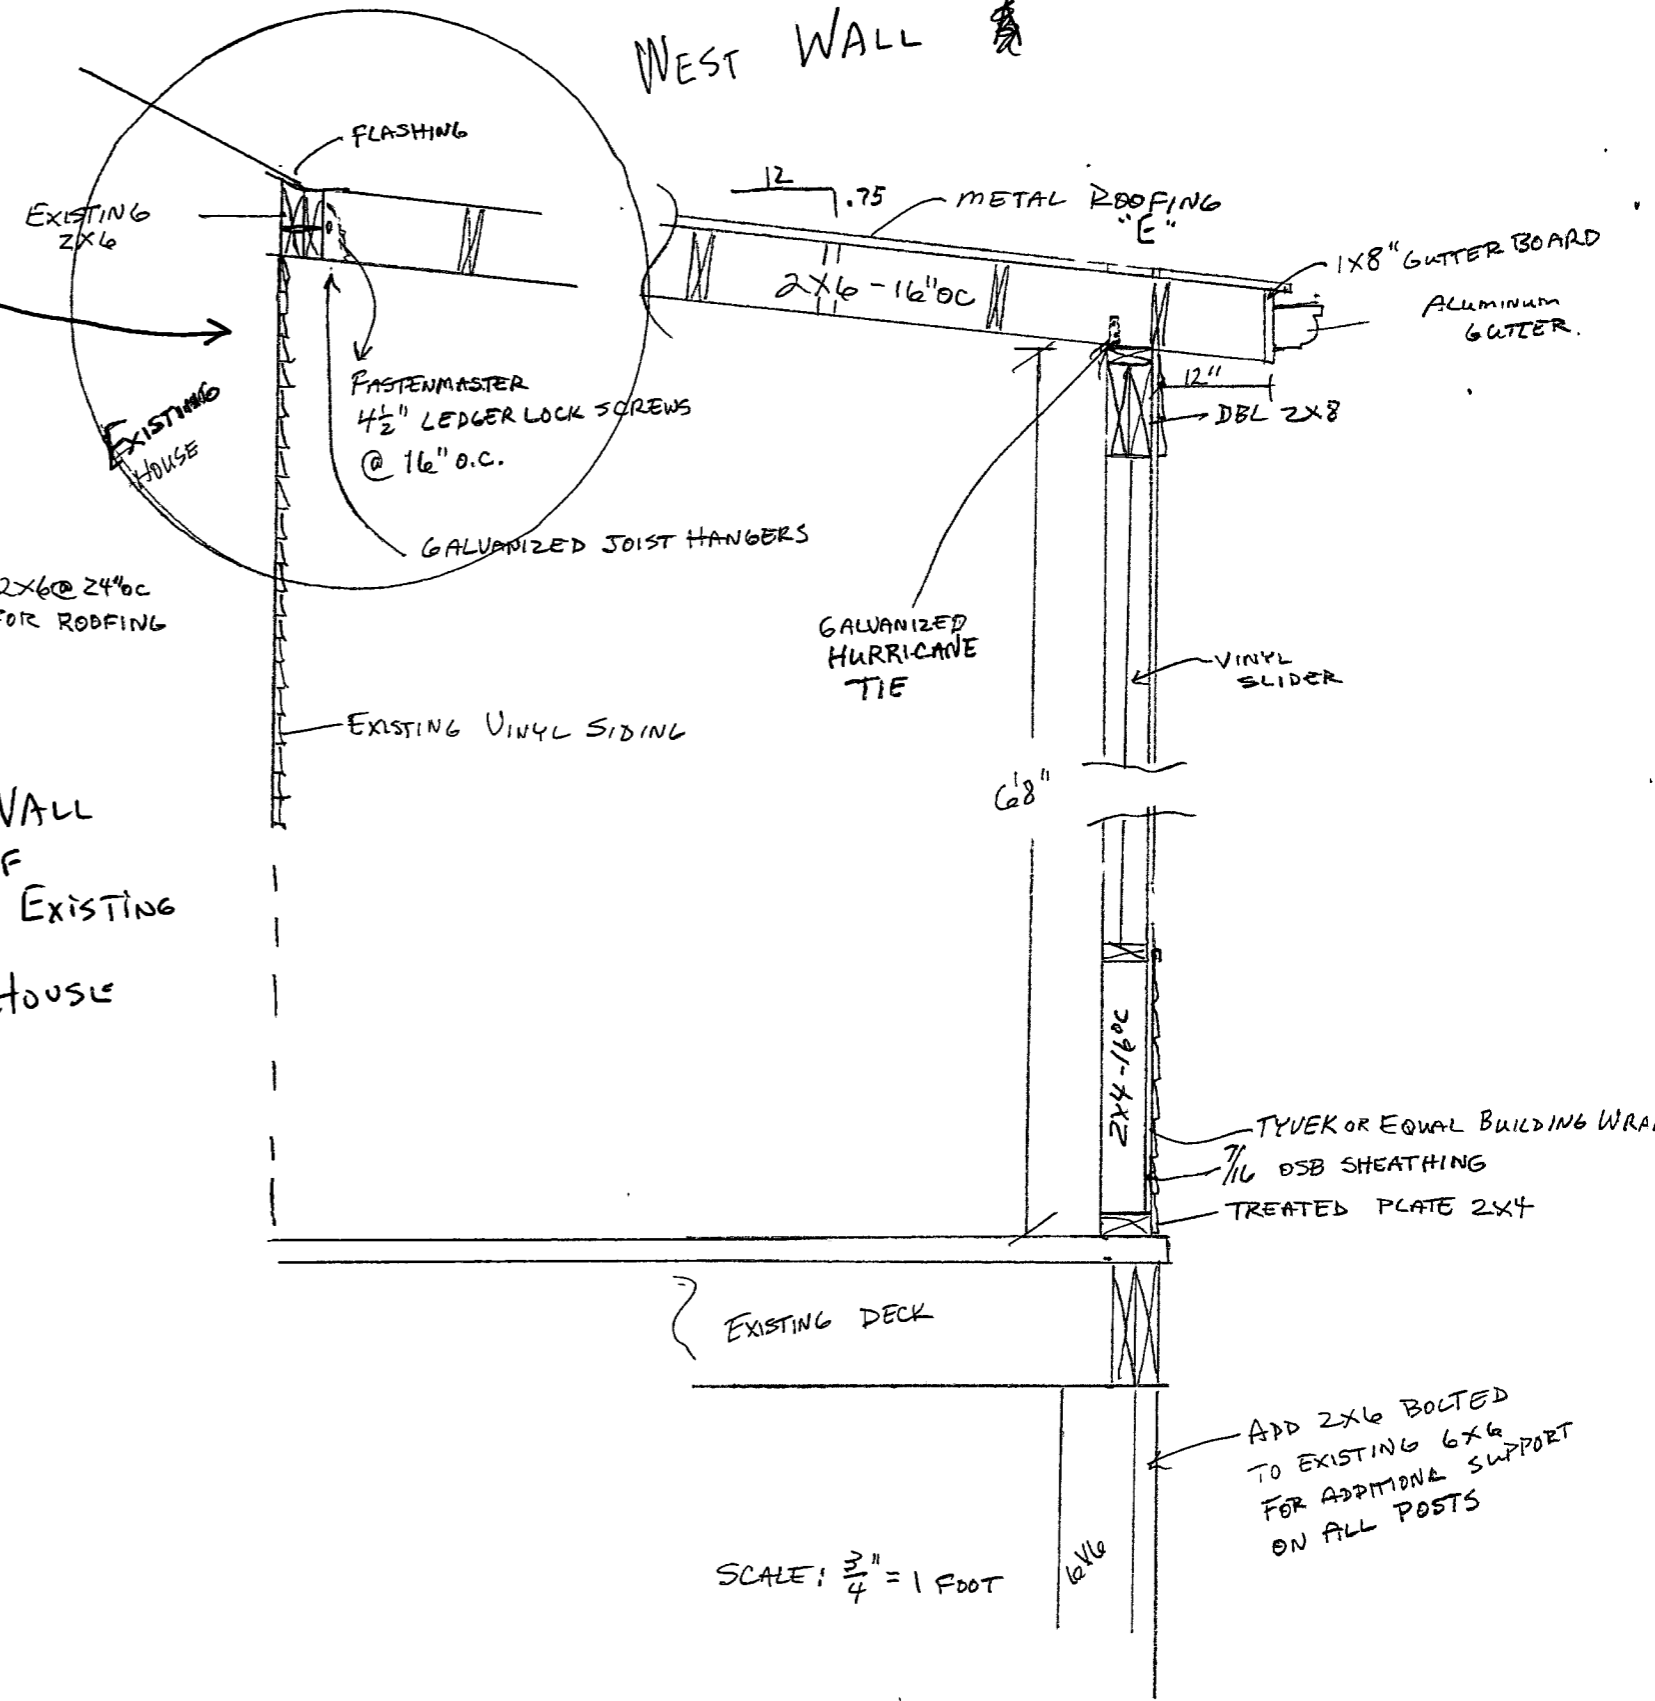 WEST WALL
FLASHING
EXISTING
2X6
12
.75
METAL ROOFING
"E"
1X8" GUTTER BOARD
ALUMINUM
GUTTER.
2X6-16"OC
12"
DBL 2X8
FASTENMASTER
4½" LEDGER LOCK SCREWS
@ 16" O.C.
EXISTING
HOUSE
GALVANIZED JOIST HANGERS
2X6@24"OC
FOR ROOFING
GALVANIZED
HURRICANE
TIE
VINYL
SLIDER
EXISTING VINYL SIDING
6'8"
WALL
EXISTING
HOUSE
2X4-16OC
TYVEK OR EQUAL BUILDING WRAP
7/16 OSB SHEATHING
TREATED PLATE 2X4
EXISTING DECK
ADD 2X6 BOLTED
TO EXISTING 6X6
FOR ADDITIONA SUPPORT
ON ALL POSTS
6X6
SCALE: 3/4" = 1 FOOT